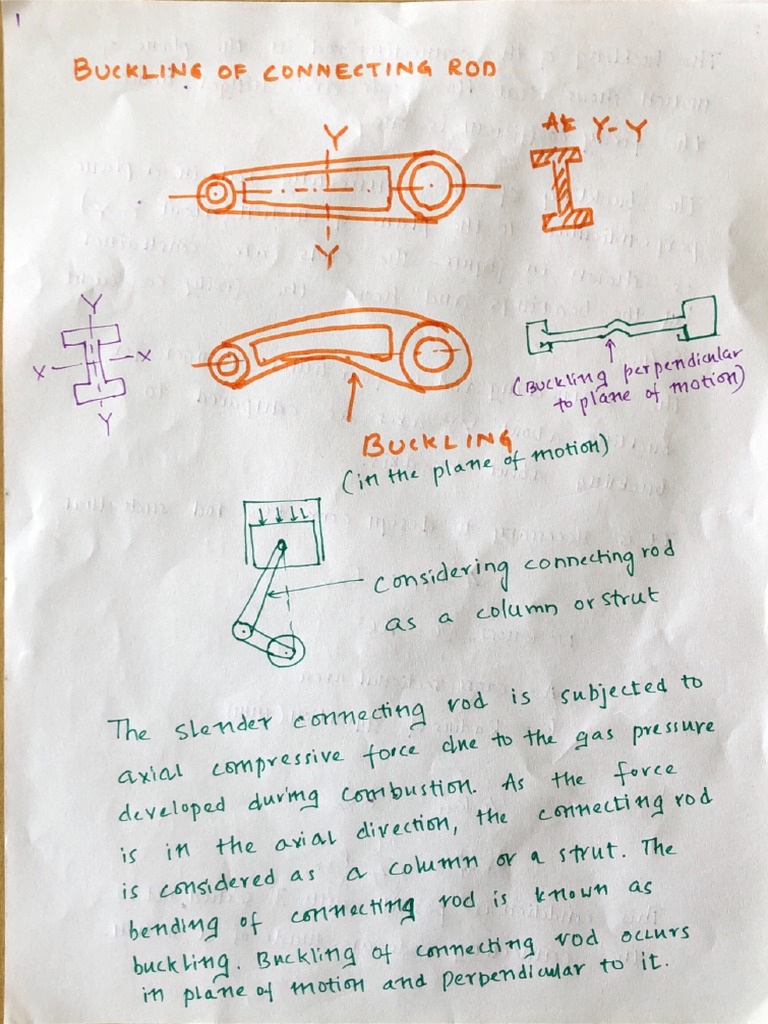 1
BUCKLING OF CONNECTING ROD
Y
At Y-Y
Y
Y
X X
Y
(BUCKLING perpendicular
to plane of motion)
BUCKLING
(in the plane of motion)
Considering connecting rod
as a column or strut
The slender connecting rod is subjected to
axial compressive force due to the gas pressure
developed during combustion. As the force
is in the axial direction, the connecting rod
is considered as a column or a strut. The
bending of connecting rod is known as
buckling. Buckling of connecting rod occurs
in plane of motion and perpendicular to it.